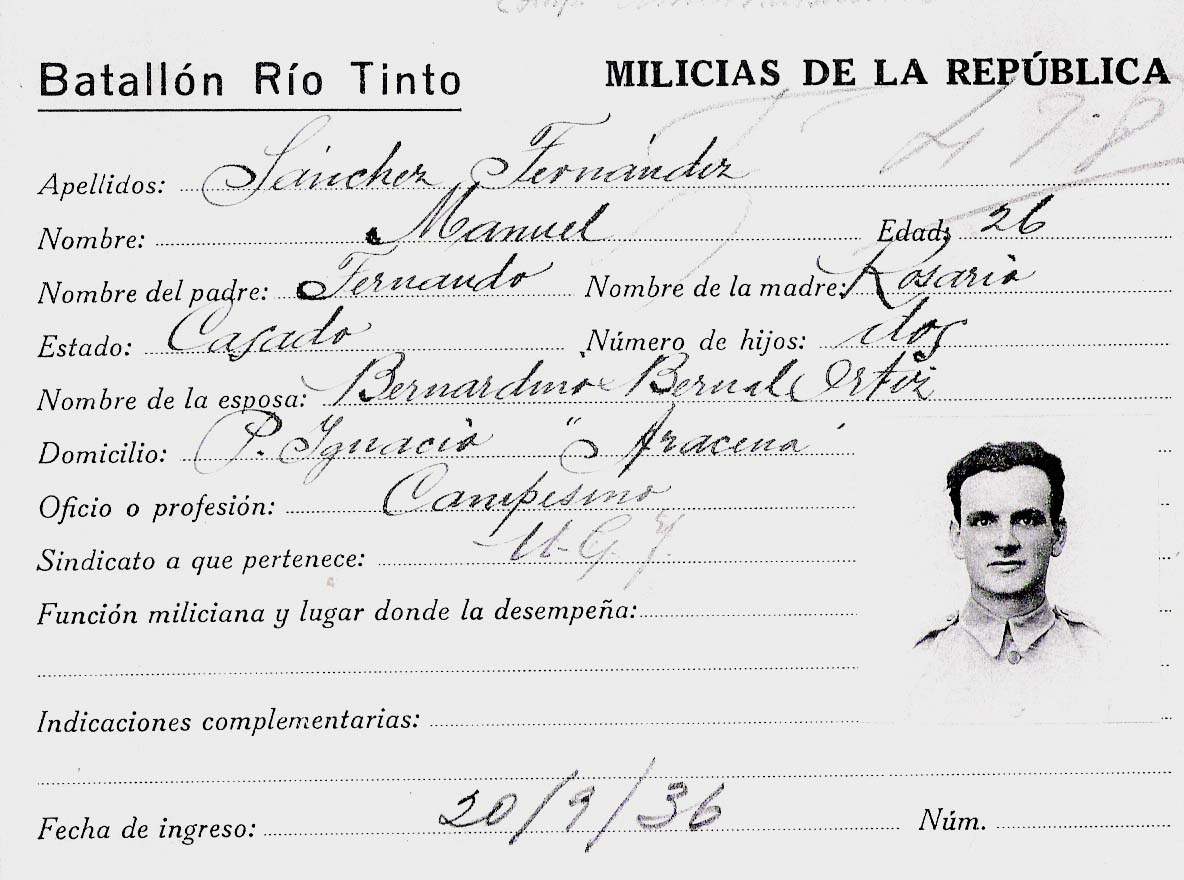 Batallón Río Tinto MILICIAS DE LA REPÚBLICA
478
Apellidos: Sánchez Fernández
Nombre: Manuel Edad: 26
Nombre del padre: Fernando Nombre de la madre: Rosario
Estado: Casado Número de hijos: dos
Nombre de la esposa: Bernardina Bernal Ortiz
Domicilio: P. Ignacio "Aracena"
Oficio o profesión: Campesino
Sindicato a que pertenece: U.G.T.
Función miliciana y lugar donde la desempeña:
Indicaciones complementarias:
Fecha de ingreso: 20/9/36 Núm.